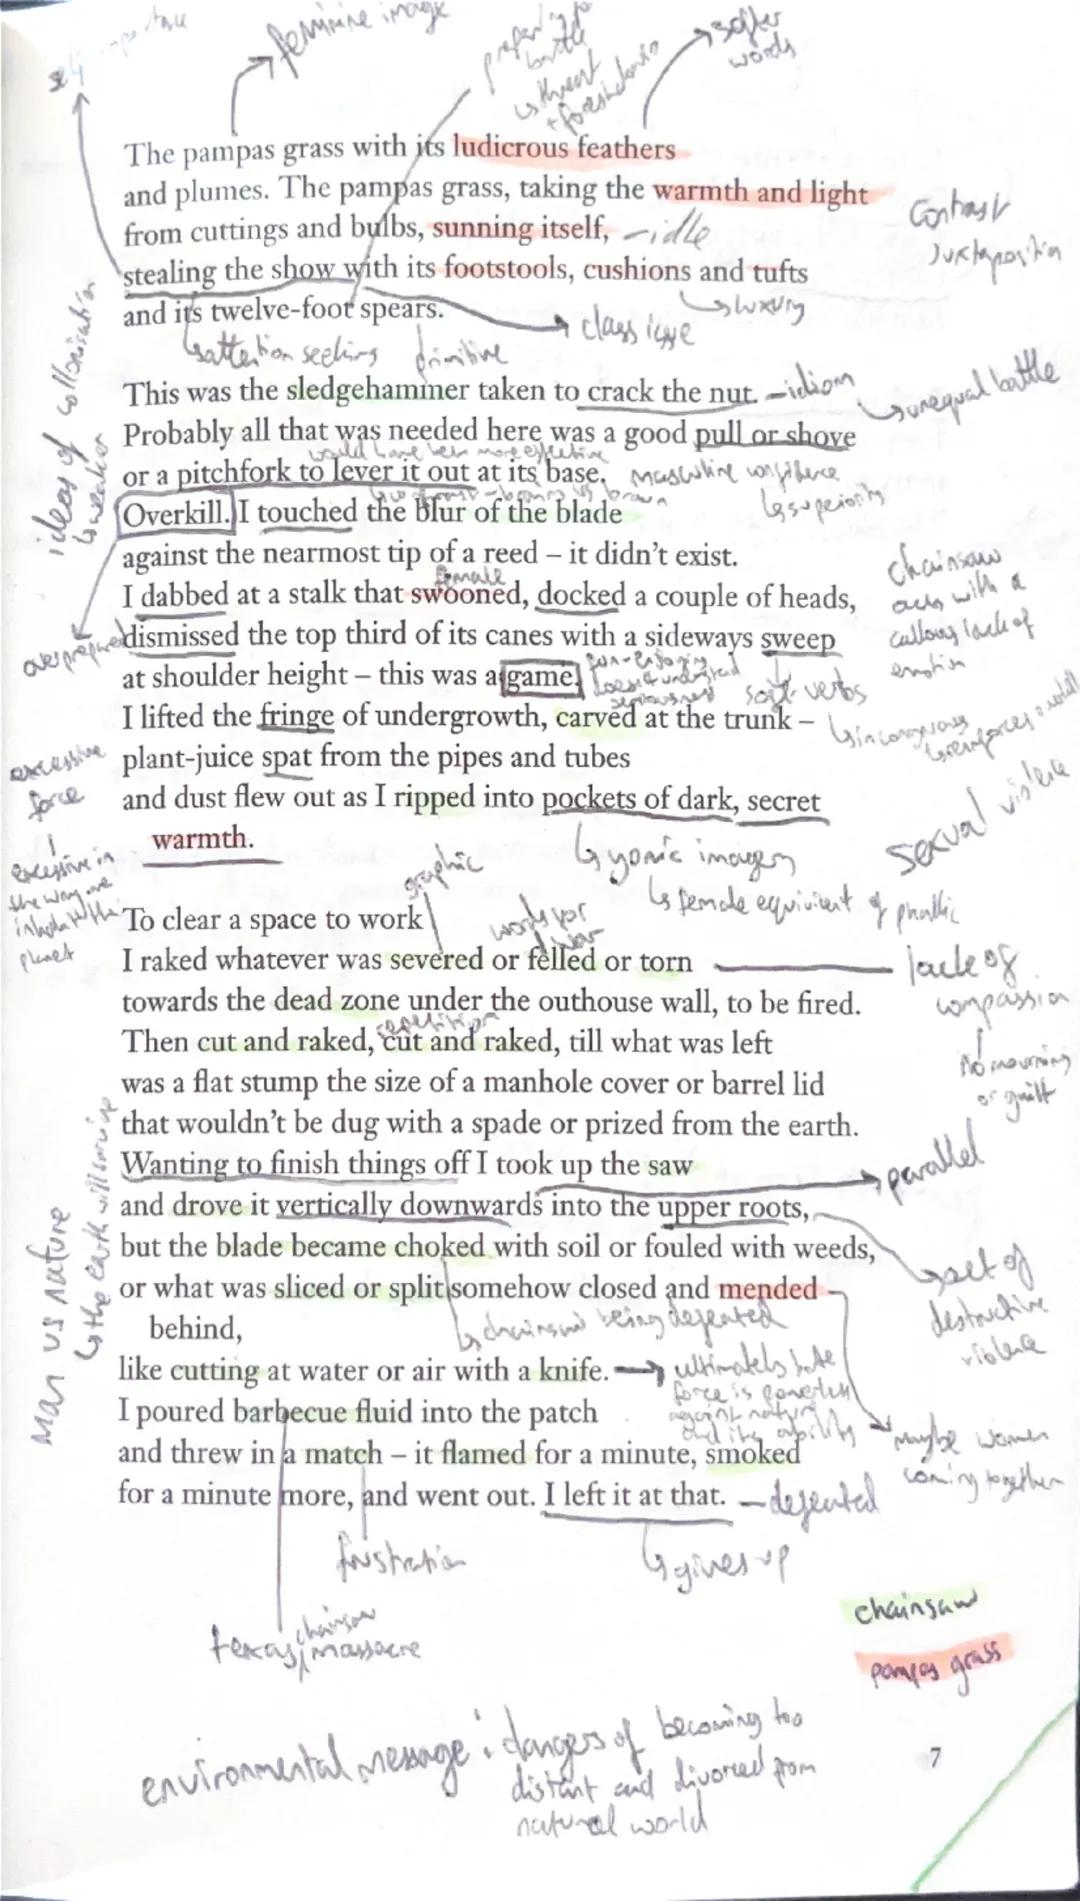 feminine image
softer
words
The pampas grass with its ludicrous feathers
and plumes. The pampas grass, taking the warmth and light
from cuttings and bulbs, sunning itself, – idle
Contrast
Juxtaposition
stealing the show with its footstools, cushions and tufts
luxury
and its twelve-foot spears.
class issue
attention seeking primitive
This was the sledgehammer taken to crack the nut. – idiom
unequal battle
Probably all that was needed here was a good pull or shove
would have been more effective
or a pitchfork to lever it out at its base. masculine confidence
superiority
ideas of collonisation
Overkill. I touched the blur of the blade
against the nearmost tip of a reed – it didn't exist.
female
I dabbed at a stalk that swooned, docked a couple of heads,
chainsaw
acts with a
callous lack of
emotion
dismissed the top third of its canes with a sideways sweep
at shoulder height – this was a game.
soft verbs
I lifted the fringe of undergrowth, carved at the trunk –
plant-juice spat from the pipes and tubes
excessive
force
and dust flew out as I ripped into pockets of dark, secret
warmth.
sexual violence
yonic imagery
female equivilent of phallic
excessive in
the way we
planet
graphic
words for
war
To clear a space to work
I raked whatever was severed or felled or torn
lack of
compassion
no mourning
or guilt
towards the dead zone under the outhouse wall, to be fired.
repetition
Then cut and raked, cut and raked, till what was left
was a flat stump the size of a manhole cover or barrel lid
that wouldn't be dug with a spade or prized from the earth.
Wanting to finish things off I took up the saw
parallel
and drove it vertically downwards into the upper roots,
act of
destructive
violence
but the blade became choked with soil or fouled with weeds,
or what was sliced or split somehow closed and mended
behind,
chainsaw being defeated
man vs nature
the earth will survive
like cutting at water or air with a knife.
ultimately brute
force is powerless
against nature
and its ability
I poured barbecue fluid into the patch
and threw in a match – it flamed for a minute, smoked
maybe women
coming together
for a minute more, and went out. I left it at that. – defeated
frustration
gives up
texas chainsaw massacre
chainsaw
pampas grass
environmental message: dangers of becoming too
distant and divorced from
natural world
7